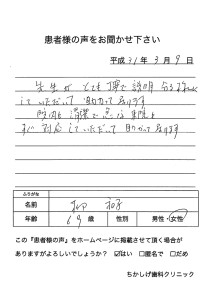 患者様の声をお聞かせ下さい
平成31年3月9日
先生がとても丁寧で説明も分る様に
していただいて助かって居ります
院内も清潔で急な来院も
すぐ対応していただいて助かって居ります
ふりがな
名前
年齢 69歳 性別 男性・女性
この『患者様の声』をホームページに掲載させて頂く場合が
ありますがよろしいでしょうか？ ☑はい □匿名で □だめ
ちかしげ歯科クリニック